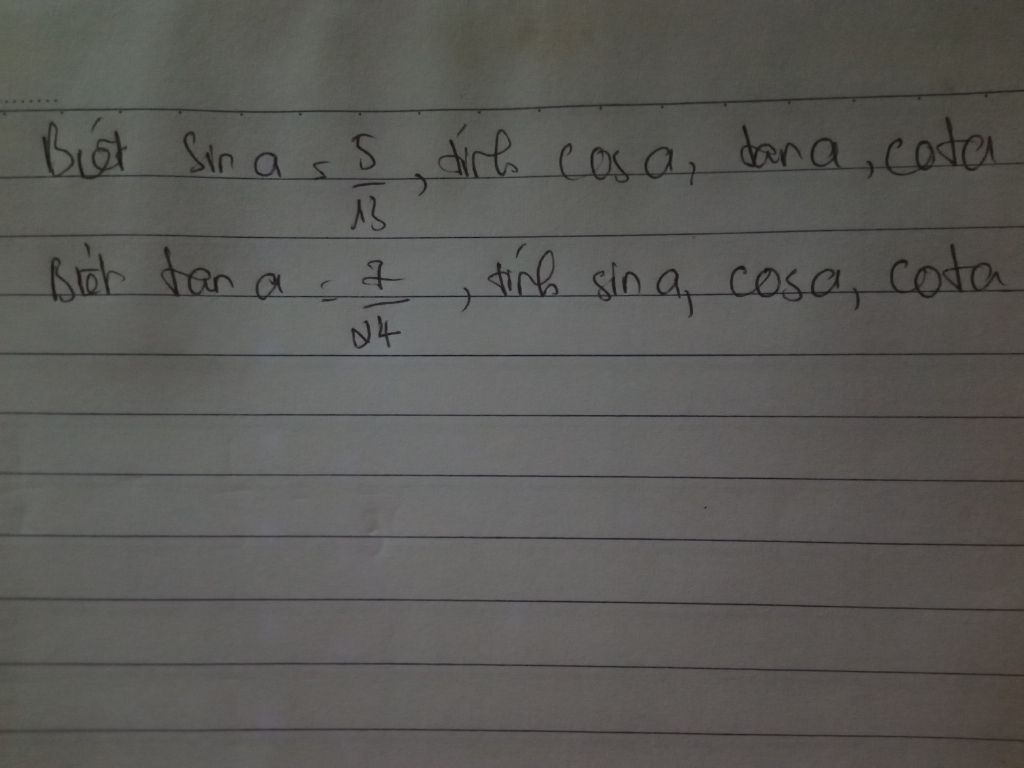 Biết sin a = 5/13, tính cos a, tan a, cota
Biết tan a = 7/24, tính sin a, cosa, cota